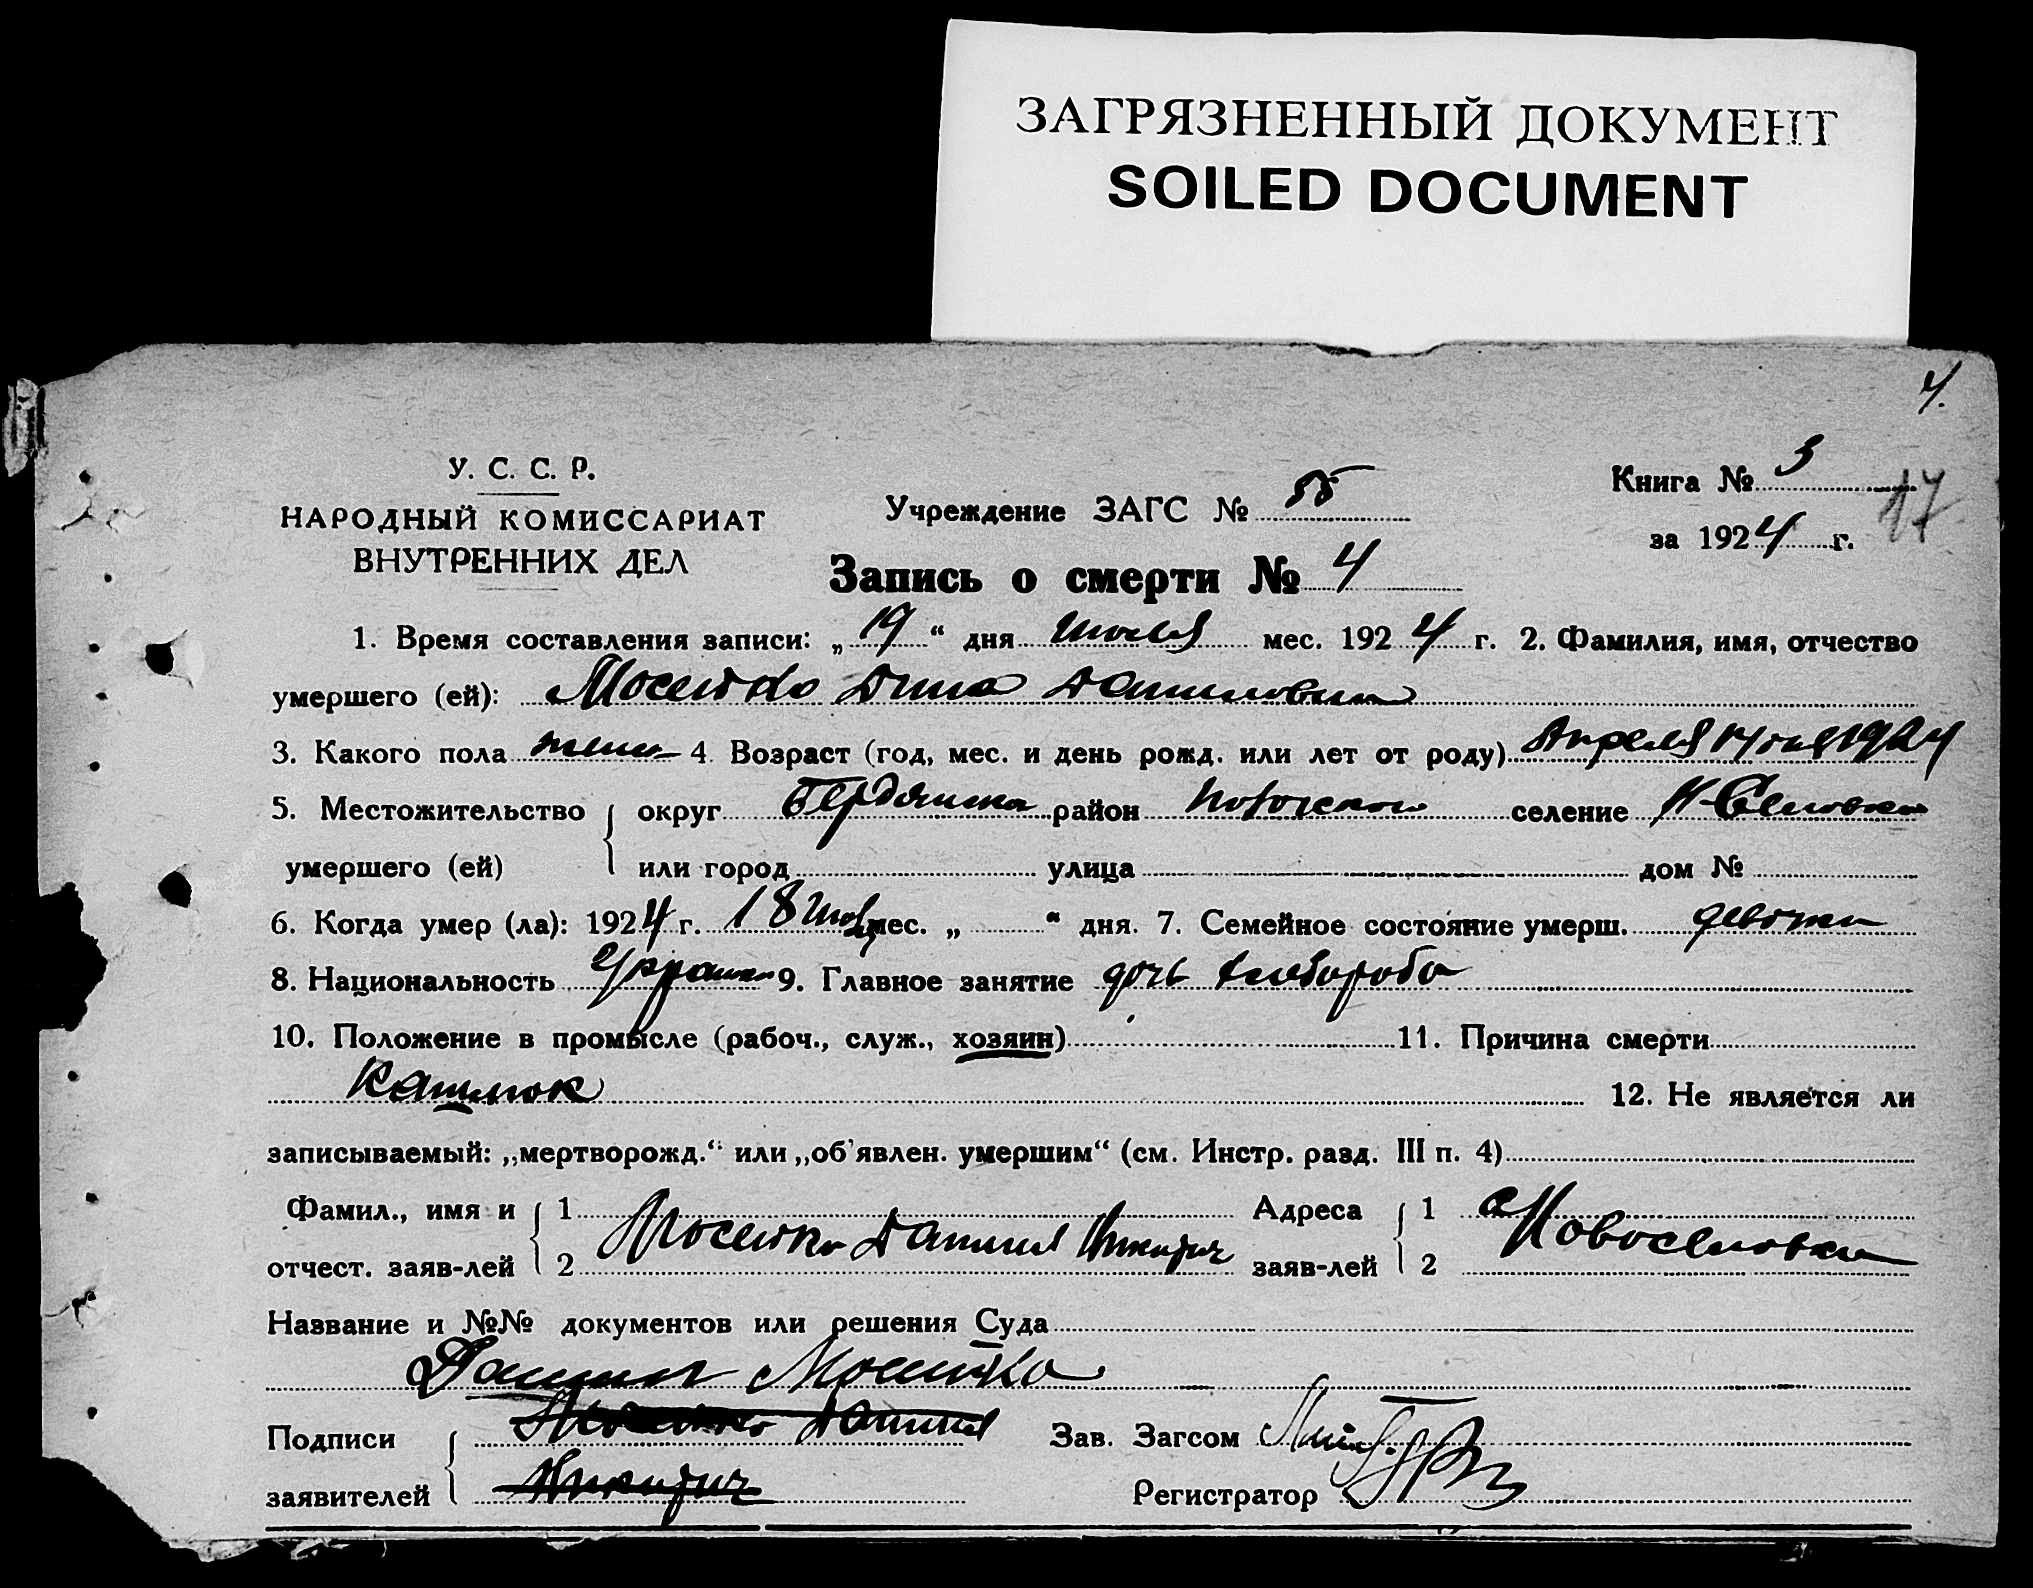 ЗАГРЯЗНЕННЫЙ ДОКУМЕНТ
SOILED DOCUMENT
4.
У. С. С. Р.
НАРОДНЫЙ КОМИССАРИАТ
ВНУТРЕННИХ ДЕЛ
Учреждение ЗАГС №
Книга № 3
17
за 1924 г.
Запись о смерти № 4
1. Время составления записи: „19“ дня июля мес. 1924 г. 2. Фамилия, имя, отчество
умершего (ей):
3. Какого пола женск 4. Возраст (год, мес. и день рожд. или лет от роду) Апреля 1924
5. Местожительство округ Бердянска район селение
умершего (ей) или город улица дом №
6. Когда умер (ла): 1924 г. 18 июля мес. „ “ дня. 7. Семейное состояние умерш. девочка
8. Национальность 9. Главное занятие дочь хлебороба
10. Положение в промысле (рабоч., служ., хозяин) 11. Причина смерти
Кашлюк
12. Не является ли
записываемый: „мертворожд.“ или „об'явлен. умершим“ (см. Инстр. разд. III п. 4)
Фамил., имя и 1 Адреса 1 с Новоселовка
отчест. заяв-лей 2 Даниил Никитич заяв-лей 2
Название и №№ документов или решения Суда
Даниил
Подписи Даниил Зав. Загсом
заявителей Никитич Регистратор